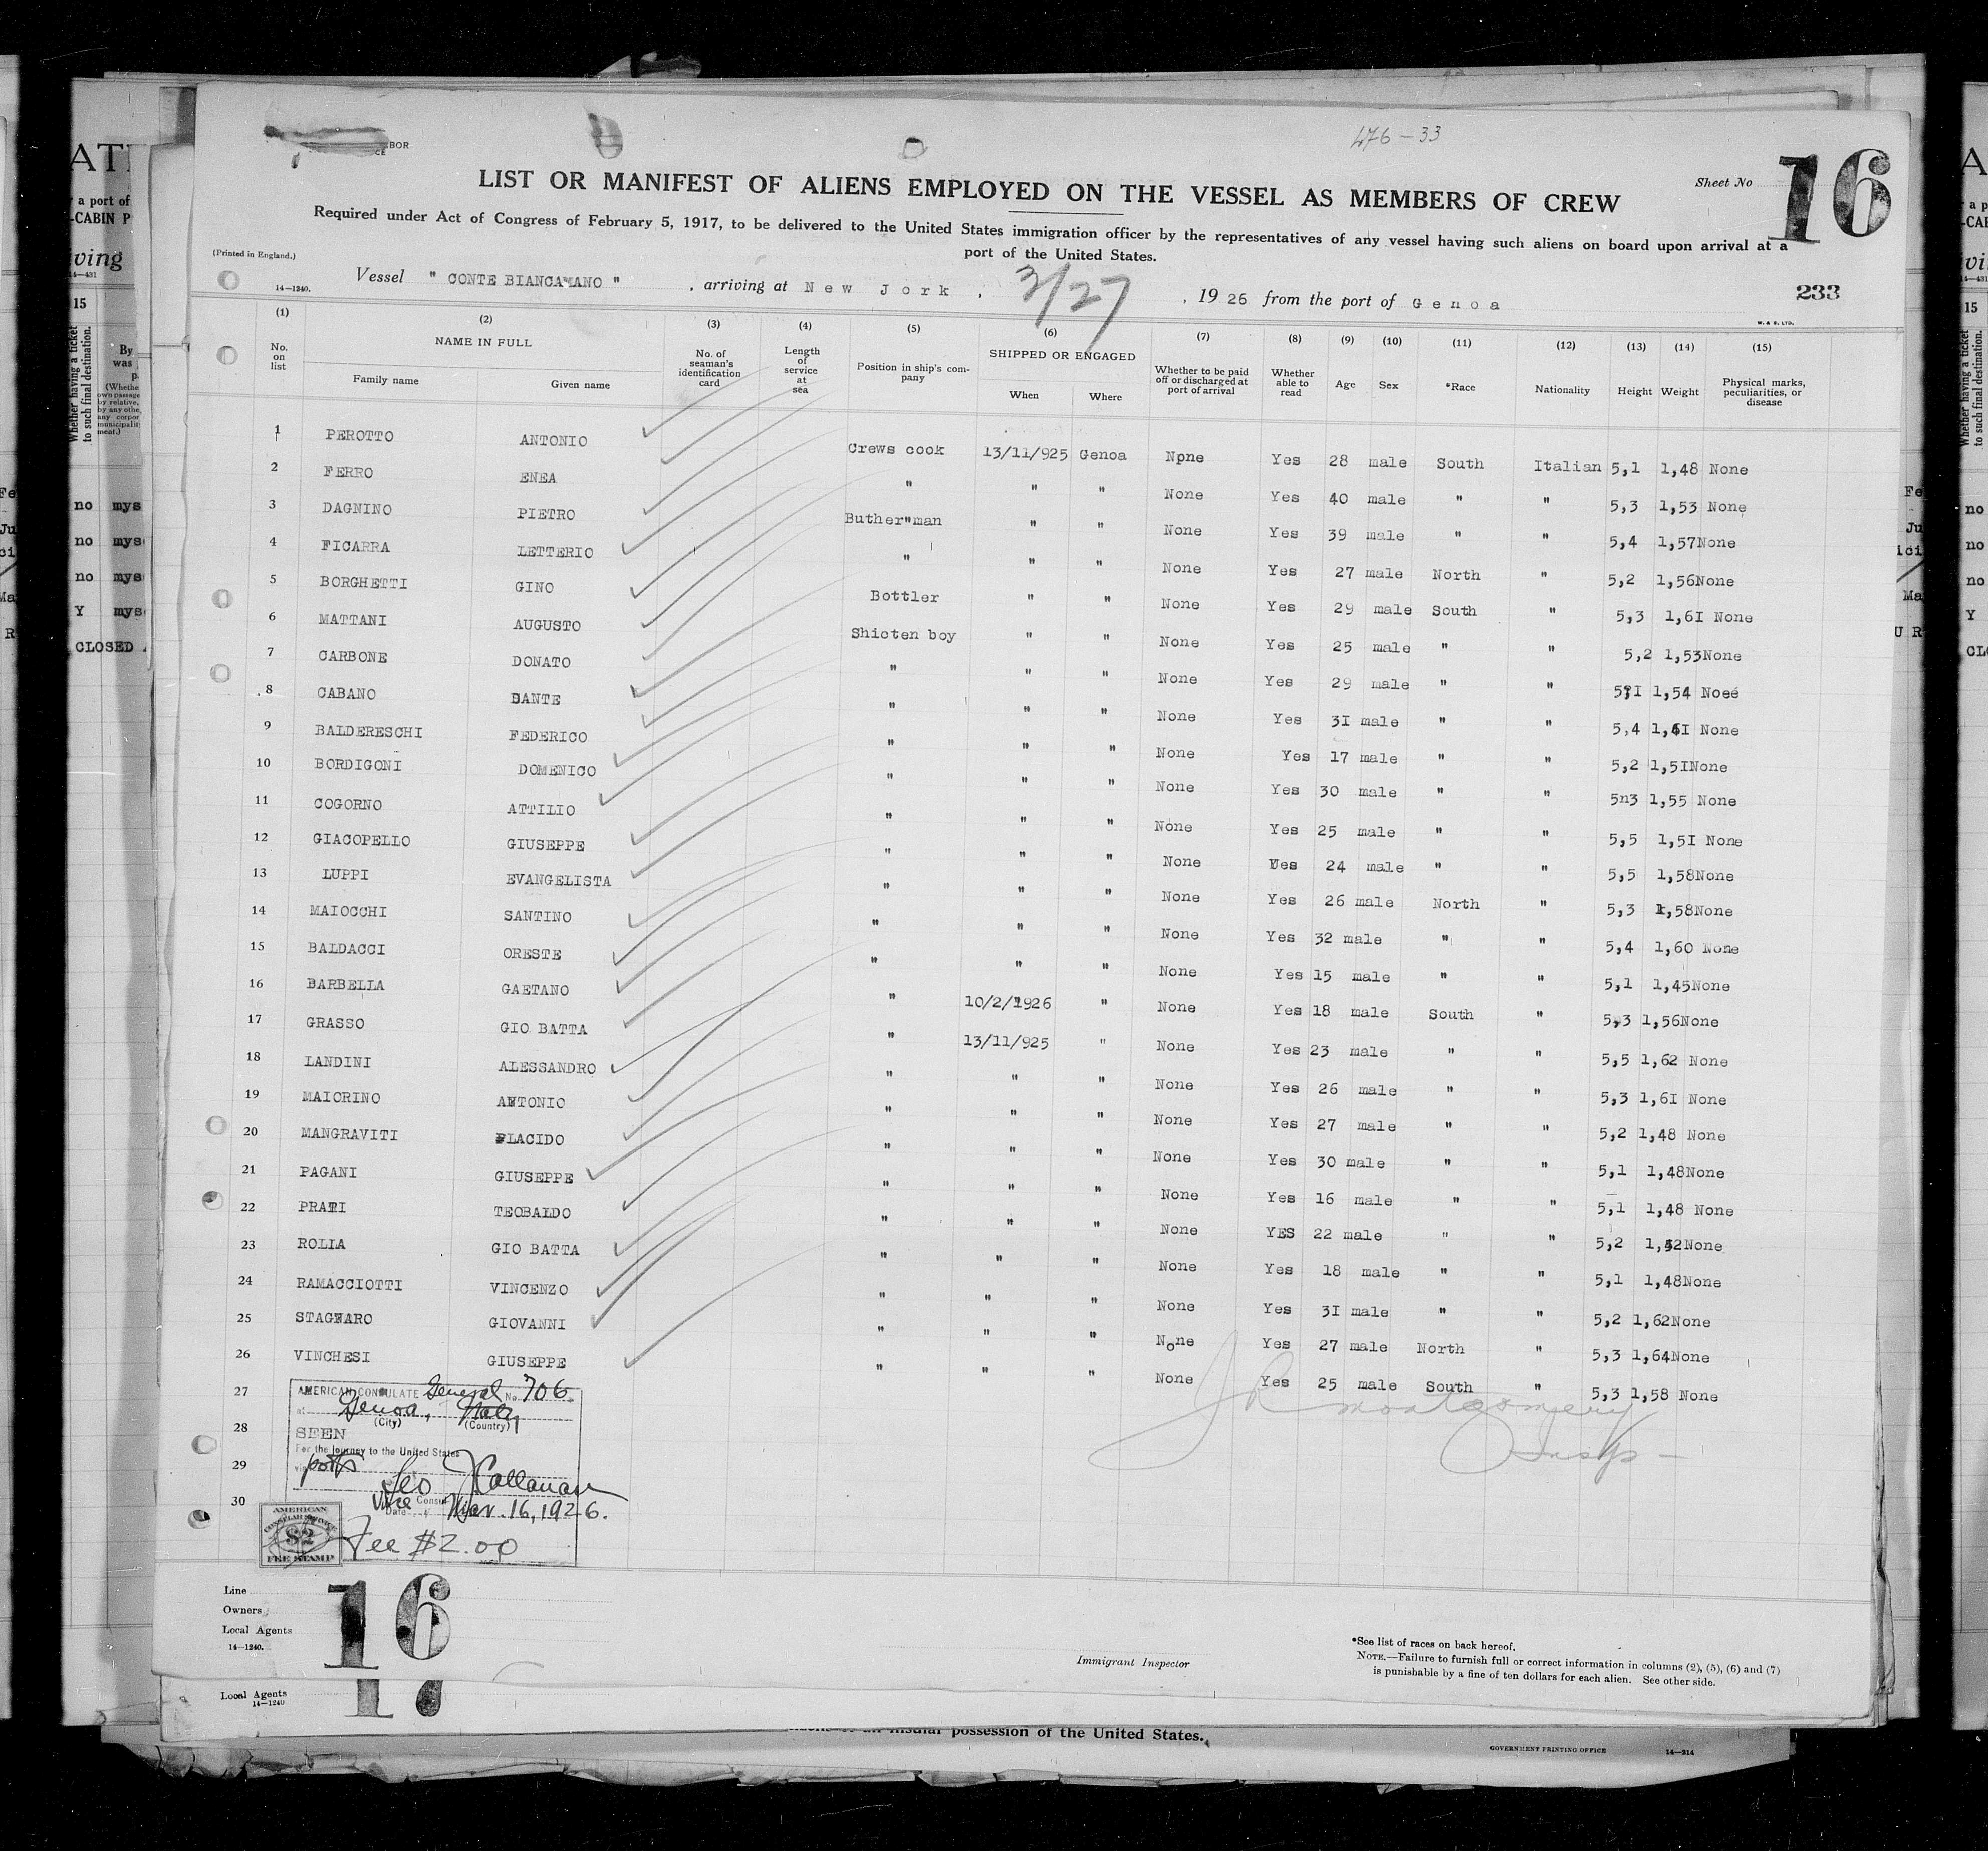 476-33
BOR
CE
LIST OR MANIFEST OF ALIENS EMPLOYED ON THE VESSEL AS MEMBERS OF CREW
Sheet No 16
Required under Act of Congress of February 5, 1917, to be delivered to the United States immigration officer by the representatives of any vessel having such aliens on board upon arrival at a
port of the United States.
(Printed in England.)
14-1240.
Vessel " CONTE BIANCAMANO " , arriving at New Jork , 3/27 , 1926 from the port of Genoa
233
W. & S. LTD.
(1) (2) (3) (4) (5) (6) (7) (8) (9) (10) (11) (12) (13) (14) (15)
No. on list NAME IN FULL Family name Given name No. of seaman's identification card Length of service at sea Position in ship's company SHIPPED OR ENGAGED When Where Whether to be paid off or discharged at port of arrival Whether able to read Age Sex *Race Nationality Height Weight Physical marks, peculiarities, or disease
1 PEROTTO ANTONIO Crews cook 13/11/925 Genoa Npne Yes 28 male South Italian 5,1 1,48 None
2 FERRO ENEA " " " None Yes 40 male " " 5,3 1,53 None
3 DAGNINO PIETRO Buther"man " " None Yes 39 male " " 5,4 1,57None
4 FICARRA LETTERIO " " " None Yes 27 male North " 5,2 1,56None
5 BORGHETTI GINO Bottler " " None Yes 29 male South " 5,3 1,6I None
6 MATTANI AUGUSTO Shicten boy " " None Yes 25 male " " 5,2 1,53None
7 CARBONE DONATO " " " None Yes 29 male " " 5,I 1,54 Noeé
8 CABANO DANTE " " " None Yes 3I male " " 5,4 1,6I None
9 BALDERESCHI FEDERICO " " " None Yes 17 male " " 5,2 1,5INone
10 BORDIGONI DOMENICO " " " None Yes 30 male " " 5n3 1,55 None
11 COGORNO ATTILIO " " " None Yes 25 male " " 5,5 1,5I None
12 GIACOPELLO GIUSEPPE " " " None Yes 24 male " " 5,5 1,58None
13 LUPPI EVANGELISTA " " " None Yes 26 male North " 5,3 1,58None
14 MAIOCCHI SANTINO " " " None Yes 32 male " " 5,4 1,60 None
15 BALDACCI ORESTE " " " None Yes 15 male " " 5,1 1,45None
16 BARBELLA GAETANO " 10/2/1926 " None Yes 18 male South " 5,3 1,56None
17 GRASSO GIO BATTA " 13/11/925 " None Yes 23 male " " 5,5 1,62 None
18 LANDINI ALESSANDRO " " " None Yes 26 male " " 5,3 1,6I None
19 MAIORINO ANTONIO " " " None Yes 27 male " " 5,2 1,48 None
20 MANGRAVITI PLACIDO " " " None Yes 30 male " " 5,1 1,48None
21 PAGANI GIUSEPPE " " " None Yes 16 male " " 5,1 1,48 None
22 PRATI TEOBALDO " " " None YES 22 male " " 5,2 None
23 ROLLA GIO BATTA " " " None Yes 18 male " " 5,1 1,48None
24 RAMACCIOTTI VINCENZO " " " None Yes 3I male " " 5,2 1,62None
25 STAGNARO GIOVANNI " " " None Yes 27 male North " 5,3 1,64None
26 VINCHESI GIUSEPPE " " " None Yes 25 male South " 5,3 1,58 None
27
28
29
30
AMERICAN CONSULATE General No. 706
at Genoa, Italy
(City) (Country)
SEEN
For the journey to the United States
via ports
Leo J Callanan
Vice Consul
Date Mar. 16, 1926.
AMERICAN CONSULAR SERVICE $2 FEE STAMP
Fee $2.00
J R Montgomery
Insp-
Line
Owners
Local Agents
14-1240.
16
Immigrant Inspector
*See list of races on back hereof.
NOTE.—Failure to furnish full or correct information in columns (2), (5), (6) and (7)
is punishable by a fine of ten dollars for each alien. See other side.
Local Agents
14-1240
17
insular possession of the United States.
GOVERNMENT PRINTING OFFICE 14-214